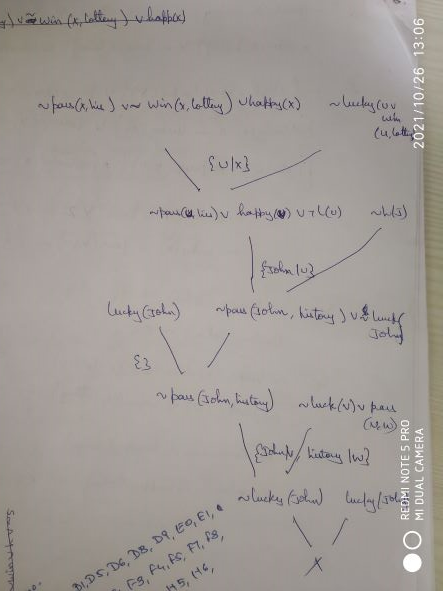 ∨ ~ Win (x, lottery) ∨ happy(x)
~pass(x, his) ∨ ~ Win(x, lottery) ∨ happy(x) ~lucky(u) ∨
win
(u, lottery
{U/x}
~pass(u, his) ∨ happy(u) ∨ ¬L(u) ~h(J)
{John/u}
lucky(John) ~pass(John, history) ∨ ~ luck(
John)
{}
~pass(John, history) ~luck(v) ∨ pass
(v, w)
{John/v, history/w}
~lucky(John) lucky(John)
X
D1, D5, D6, D8, D9, E0, E1,
F3, F4, F5, F7, F8,
H5, H6,
2021/10/26 13:06
REDMI NOTE 5 PRO
MI DUAL CAMERA